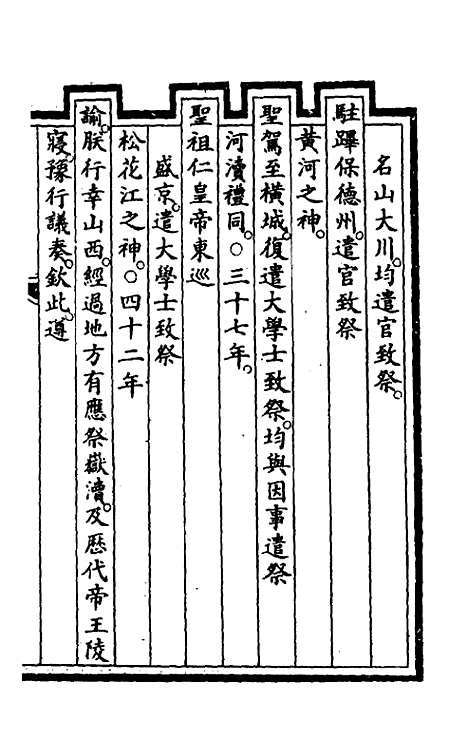 名山大川。均遣官致祭。
駐蹕保德州。遣官致祭
黃河之神。
聖駕至橫城。復遣大學士致祭。均與因事遣祭
河瀆禮同。○三十七年。
聖祖仁皇帝東巡
盛京。遣大學士致祭
松花江之神。○四十二年
諭。朕行幸山西。經過地方有應祭嶽瀆。及歷代帝王陵
寢。豫行議奏。欽此。遵